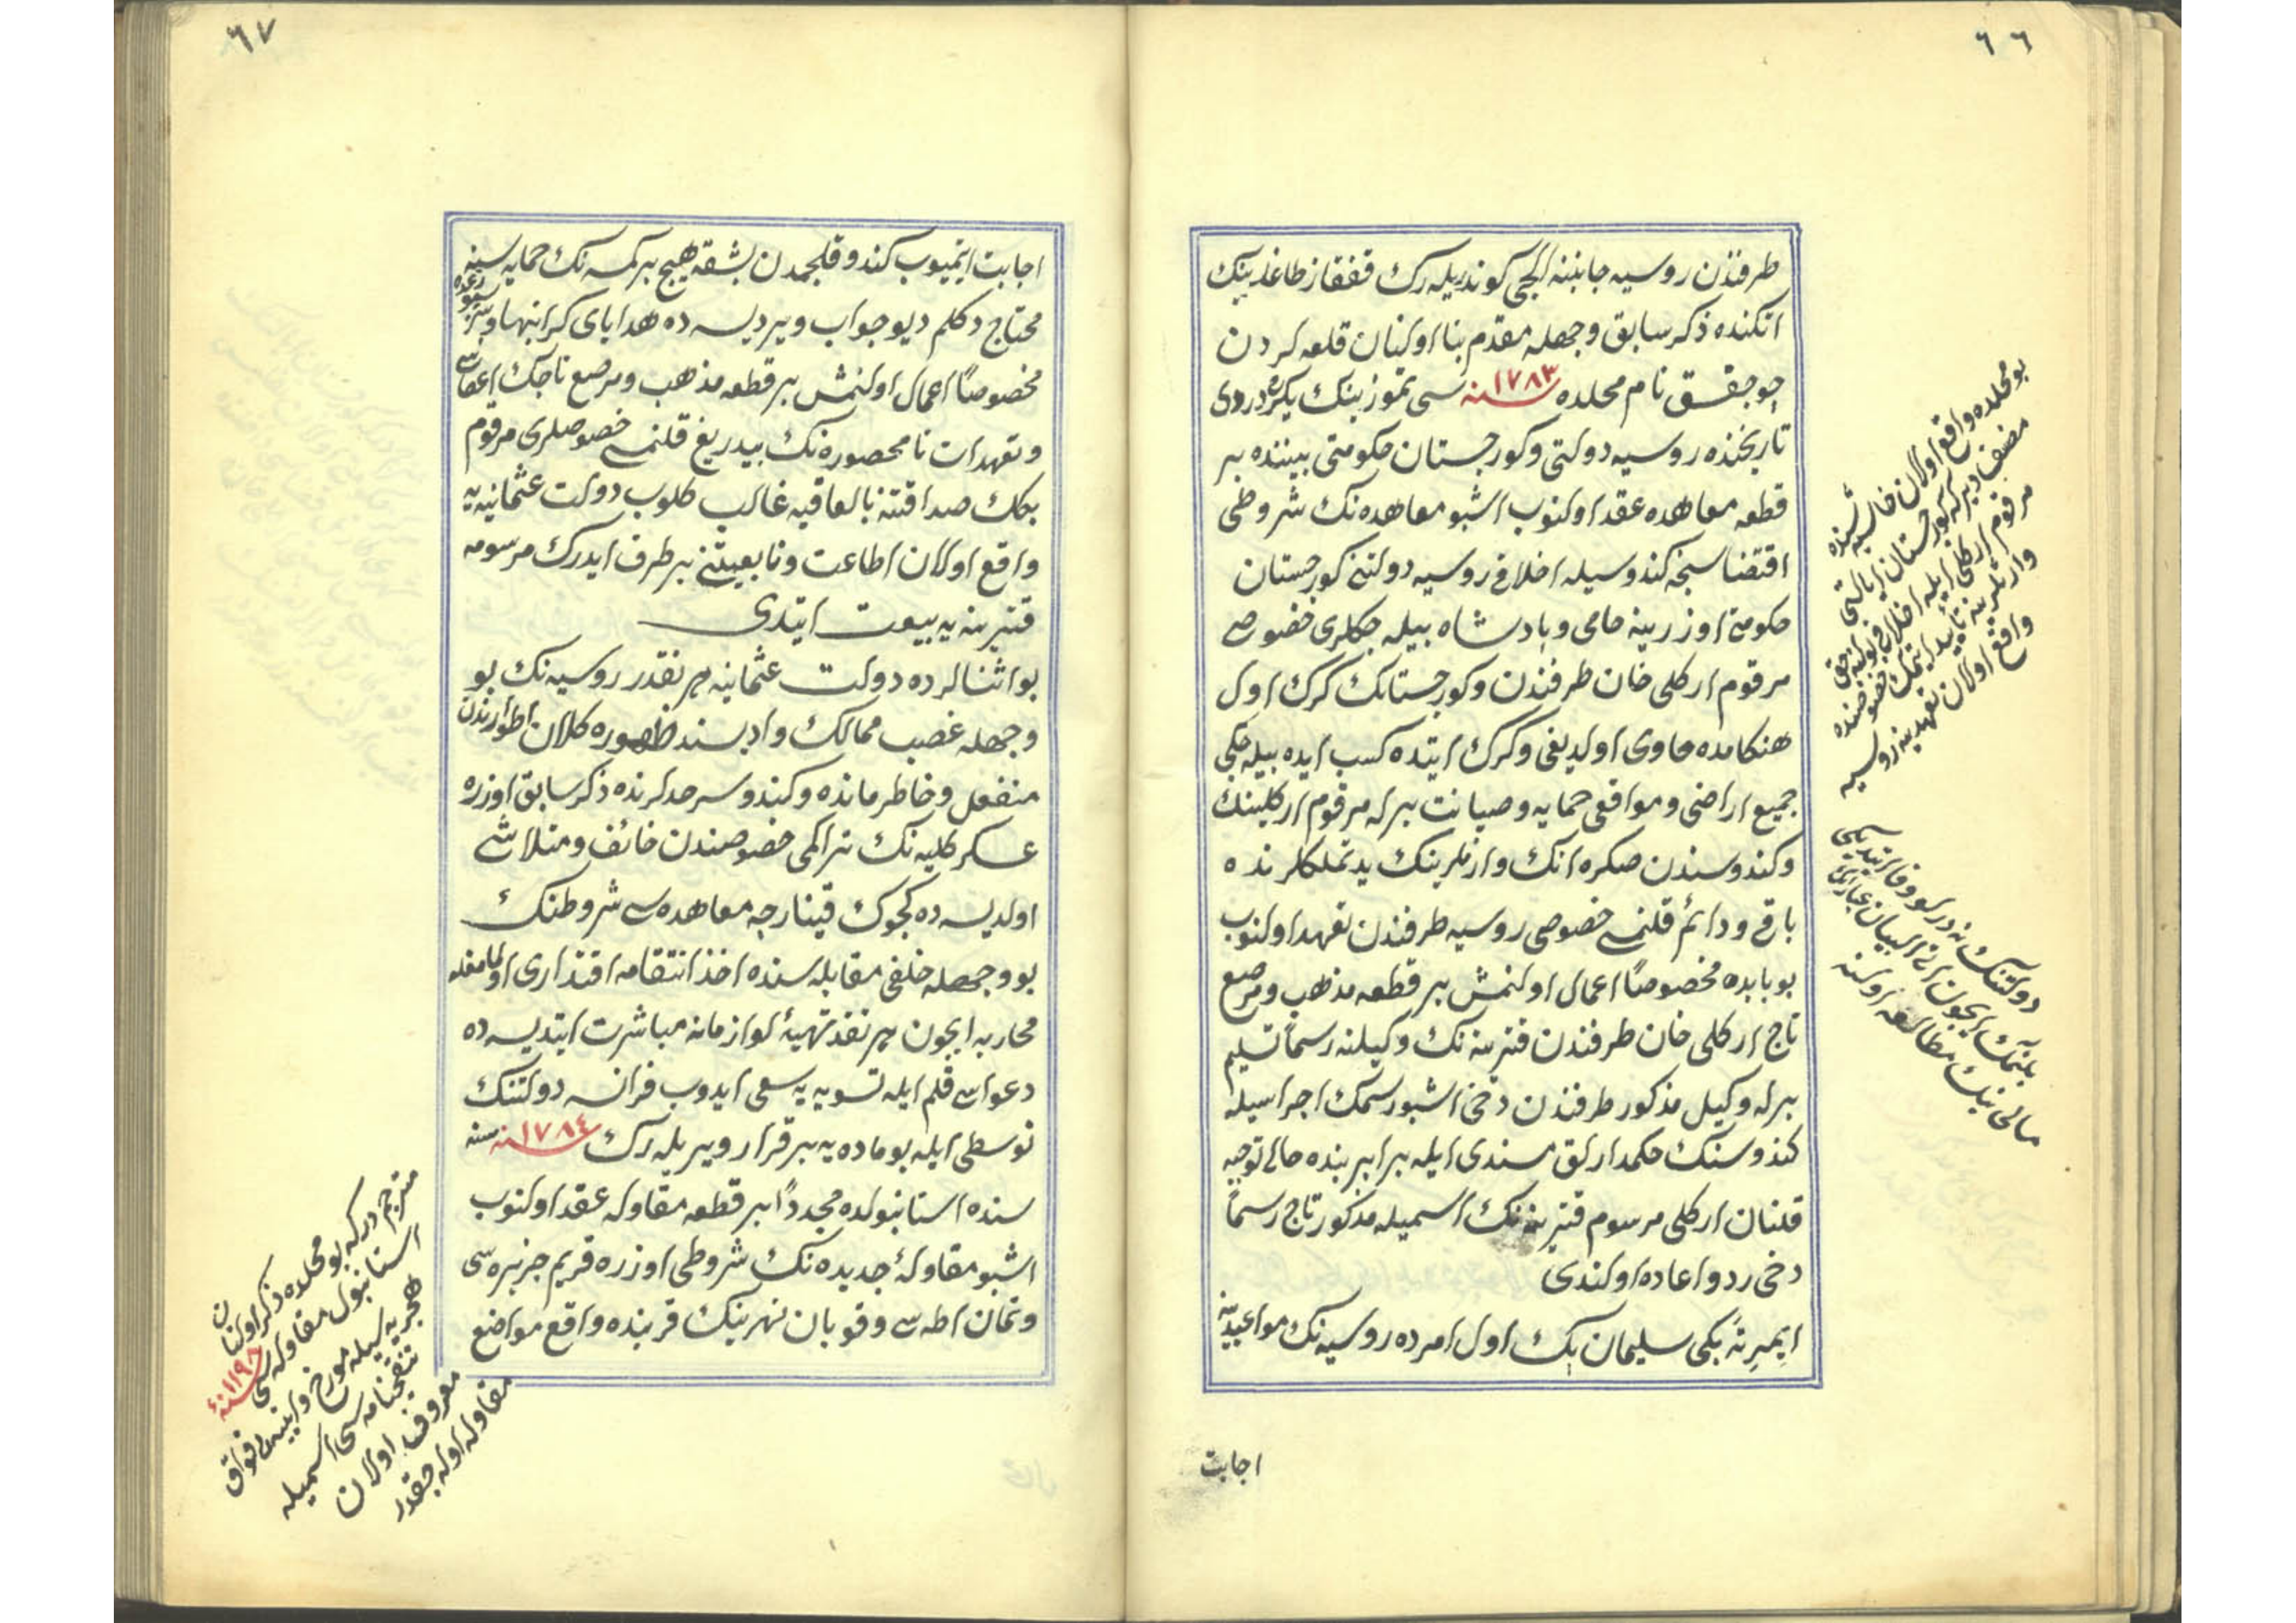 ٦٦
طرفندن روسیه جانبنه ایلچی کوندریله رك قفقاز طاغلرینك
اتکنده ذکر سابق وجهله مقدم بنا اولنان قلعه لردن
جوجقق نام محلده سنه ١٧٨٣ سی تموزینك یکرمی دردی
تاریخنده روسیه دولتی و کورجستان حکومتی بیننده بر
قطعه معاهده عقد اولنوب اشبو معاهده نك شروطی
اقتضاسنجه کندوسیله اخلافی روسیه دولتنی کورجستان
حکومتی اوزرینه حامی و پادشاه بیله جکلری خصوصی
مرقوم ارکلی خان طرفندن و کورجستانك کرك اول
هنکامده حاوی اولدیغی و کرك ایتده کسب ایده بیله جکی
جمیع اراضی و مواقعی حمایه و صیانت برله مرقوم ارکلینك
و کندوسندن صکره انك وارثلرینك ید تملکلرنده
باقی و دائم قلنمسی خصوصی روسیه طرفندن تعهد اولنوب
بو بابده مخصوصاً اعمال اولنمش بر قطعه مذهب و مرصع
تاج ارکلی خان طرفندن قترینه نك وکیلنه رسماً تسلیم
برله وکیل مذکور طرفندن دخی اشبو رسمك اجراسیله
کندوسنك حکمدارلق مسندی ایله برابر بنده حالی توجیه
قلنان ارکلی مرسوم قترینه نك اسمیله مذکور تاج رسماً
دخی رد و اعاده اولندی
ایمرته بکی سلیمان بك اول امرده روسیه نك مواعیدینه
بو محلده واقع اولان خاشیه سنده
مصنف دیرکه کورجستان ایالتی
مرقوم ارکلی ایله اخلافی بولنه جق
وارثلرینه تأیید ایتمك خصوصنده
واقع اولان تعهدینه روسیه
دولتنك نه درلو وفا ایتدیکی
بلنمك ایچون اتی البیان عبارتك
مالی نیك مطالعه اولنه
اجابت
٦٧
اجابت ایتمیوب کندو قلجمدن بشقه هیچ بر کمسه نك حمایه سنه
محتاج دکلم دیو جواب ویردیسه ده هدایای کرانبها و
مخصوصاً اعمال اولنمش بر قطعه مذهب و مرصع تاجك اعطاسی
و تعهدات نامحصوره نك بیدریغ قلنمسی خصوصلری مرقوم
بکك صداقتنه بالعاقبه غالب کلوب دولت عثمانیه یه
واقع اولان اطاعت و تابعیتنی بر طرف ایدرك مرسومه
قترینه یه بیعت ایتدی
بو اثنالرده دولت عثمانیه هر نقدر روسیه نك بو
وجهله غصب ممالك وادیسنده ظهوره کلان اطوارندن
منفعل و خاطرمانده و کندو سرحدلرنده ذکر سابق اوزره
عسکر کلیه نك تراکمی خصوصندن خائف و متلاشی
اولدیسه ده کجوك قینارجه معاهده سی شروطنك
بو وجهله خلفی مقابله سنده اخذ انتقامه اقتداری اولمامغله
محاربه ایچون هر نقدر تهیهٔ لوازمانه مباشرت ایتدیسه ده
دعواسی قلم ایله تسویه یه سعی ایدوب فرانسه دولتنك
توسطی ایله بو ماده یه بر قرار ویریله رك سنه ١٧٨٤ سنه
سنده استانبولده مجدداً بر قطعه مقاوله عقد اولنوب
اشبو مقاولهٔ جدیده نك شروطی اوزره قریم جزیره سی
و تمان اطه سی و قوبان نهرینك قربنده واقع مواضع
مترجم دیرکه بو محلده ذکر اولنان
استانبول مقاوله سی سنهٔ ١١٩٨
هجریه سیله مورخ و ایینه لی قواق
تنقیحنامه سی اسمیله
معروف اولان
مقاوله اوله جقدر